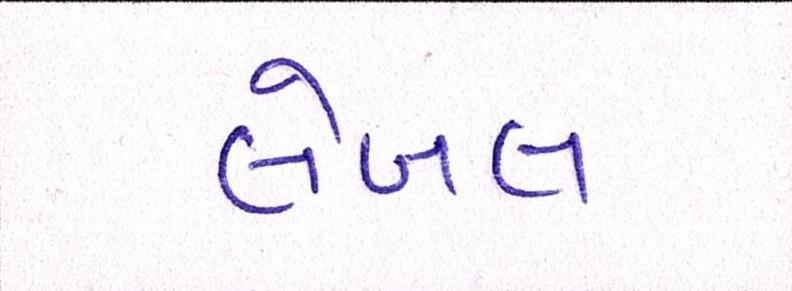 લેબલ